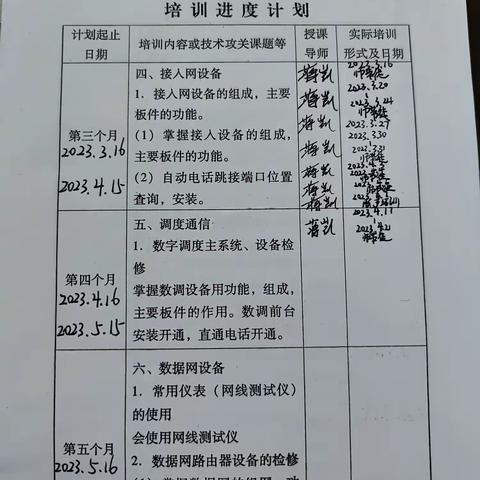 培训进度计划
计划起止
日期
培训内容或技术攻关课题等
授课
导师
实际培训
形式及日期
第三个月
2023.3.16
2023.4.15
四、接入网设备
1. 接入网设备的组成，主要
板件的功能。
(1) 掌握接入设备的组成，
主要板件的功能。
(2) 自动电话跳接端口位置
查询，安装。
蒋凯
蒋凯
蒋凯
蒋凯
蒋凯
蒋凯
2023.3.16
2023.3.20
2023.3.24
2023.3.27
2023.3.30
2023.3.31
第四个月
2023.4.16
2023.5.15
五、调度通信
1. 数字调度主系统、设备检
修
掌握数调设备用功能，组成，
主要板件的作用。数调前台
安装开通，直通电话开通。
蒋凯
2023.4.11
2023.4.21
第五个月
2023.5.16
六、数据网设备
1. 常用仪表（网线测试仪）
的使用
会使用网线测试仪
2. 数据网路由器设备的检修